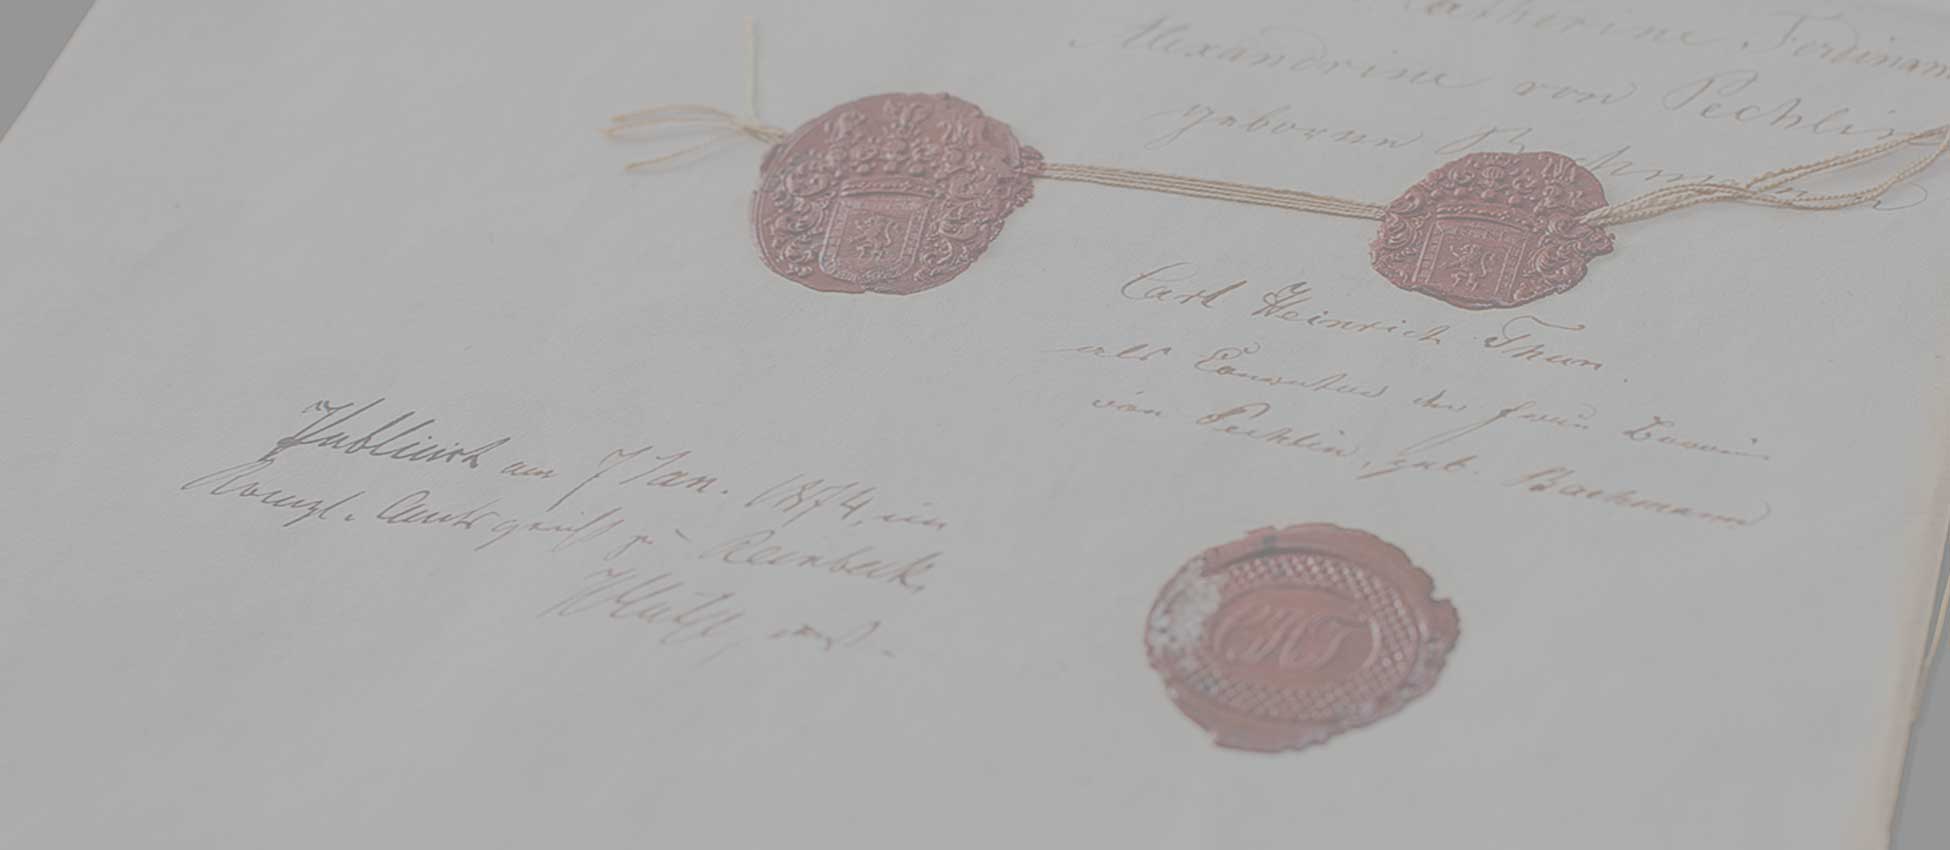 Catherine Ferdinan
Alexandrine von Pechlin
geborne Bachmann
Carl Heinrich Thun.
als Curator der Frau Baronin
von Pechlin, geb. Bachmann
Publicirt am 7 Jan. 1874, im
Königl. Amtsgericht zu Reinbeck.
CHT